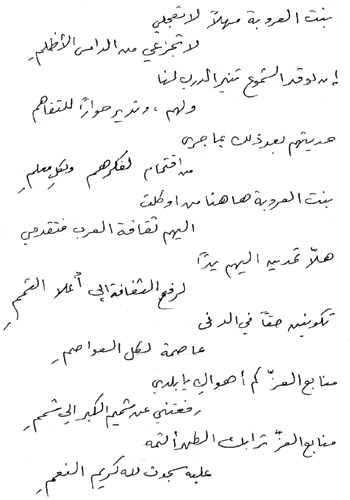 بنت العروبة مهلاً لا تعجلي
لا تجزعي من الدامس الأظلمِ
إن نوقد الشموع تنير الدرب لنا
ولهم ، وندير حواراً للتفاهم
حديثهم بعد ذلك بما جرى
من اقتحام لفكرهم ولكل معلمِ
بنت العروبة ها هنا من أوكلت
اليهم ثقافة العرب فتقدمي
هلّا تمدين اليهم يداً
لرفع الثقافة إلى أعلا القممِ
تكونين حقاً في الدنى
عاصمة لكل العواصمِ
منابع العزّ كم أهواكِ يا بلدي
رفعتني عن شميم الكبر الى شممِ
منابع العزّ ترابك الطهر ألثمه
عليه سجدت لله كريم النعمِ